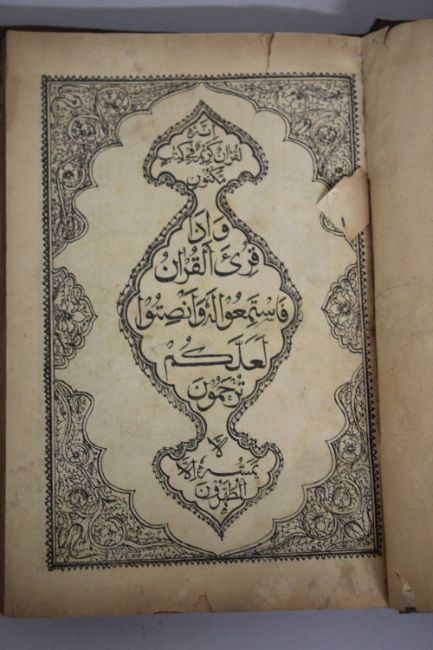 إنه
لقرآن كريم في كتب
مكنون
وَإِذَا
قُرِئَ الْقُرْآنُ
فَاسْتَمِعُوا لَهُ وَأَنْصِتُوا
لَعَلَّكُمْ
تُرْحَمُونَ
لا
يمسه إلا
المطهرون